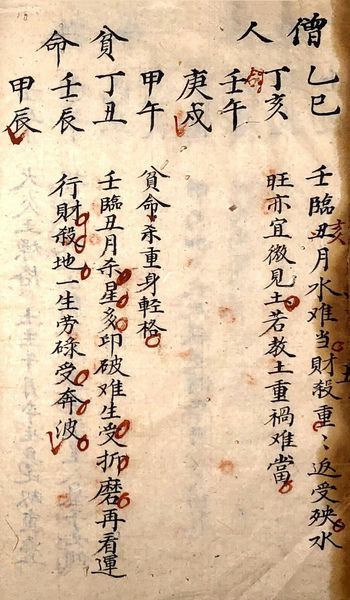 僧人
乙巳
丁亥
壬午
庚戌
壬臨丑月水难当財殺重〻返受殃水
亥
旺亦宜微見土若教土重禍难當
貧命
甲午
丁丑
壬辰
甲辰
貧命杀重身輕格
壬臨丑月杀星多印破难生受折磨再看運
行財殺地一生劳碌受奔波